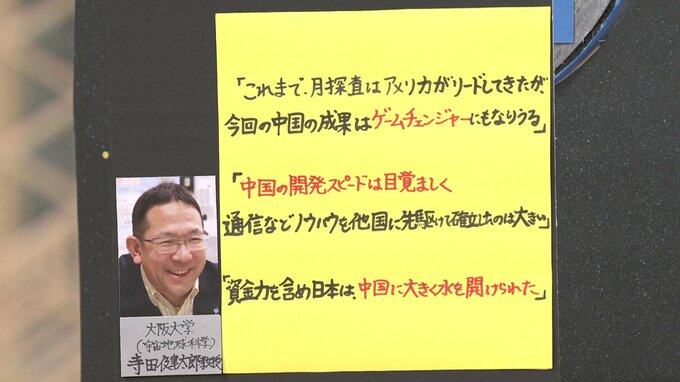 「これまで、月探査はアメリカがリードしてきたが、
今回の中国の成果はゲームチェンジャーにもなりうる」
「中国の開発スピードは目覚ましく
通信などノウハウも他国に先駆けて確立したのは大きい」
「資金力を含め日本は、中国に大きく水を開けられた」
大阪大学
(宇宙地球科学)
寺田健太郎教授